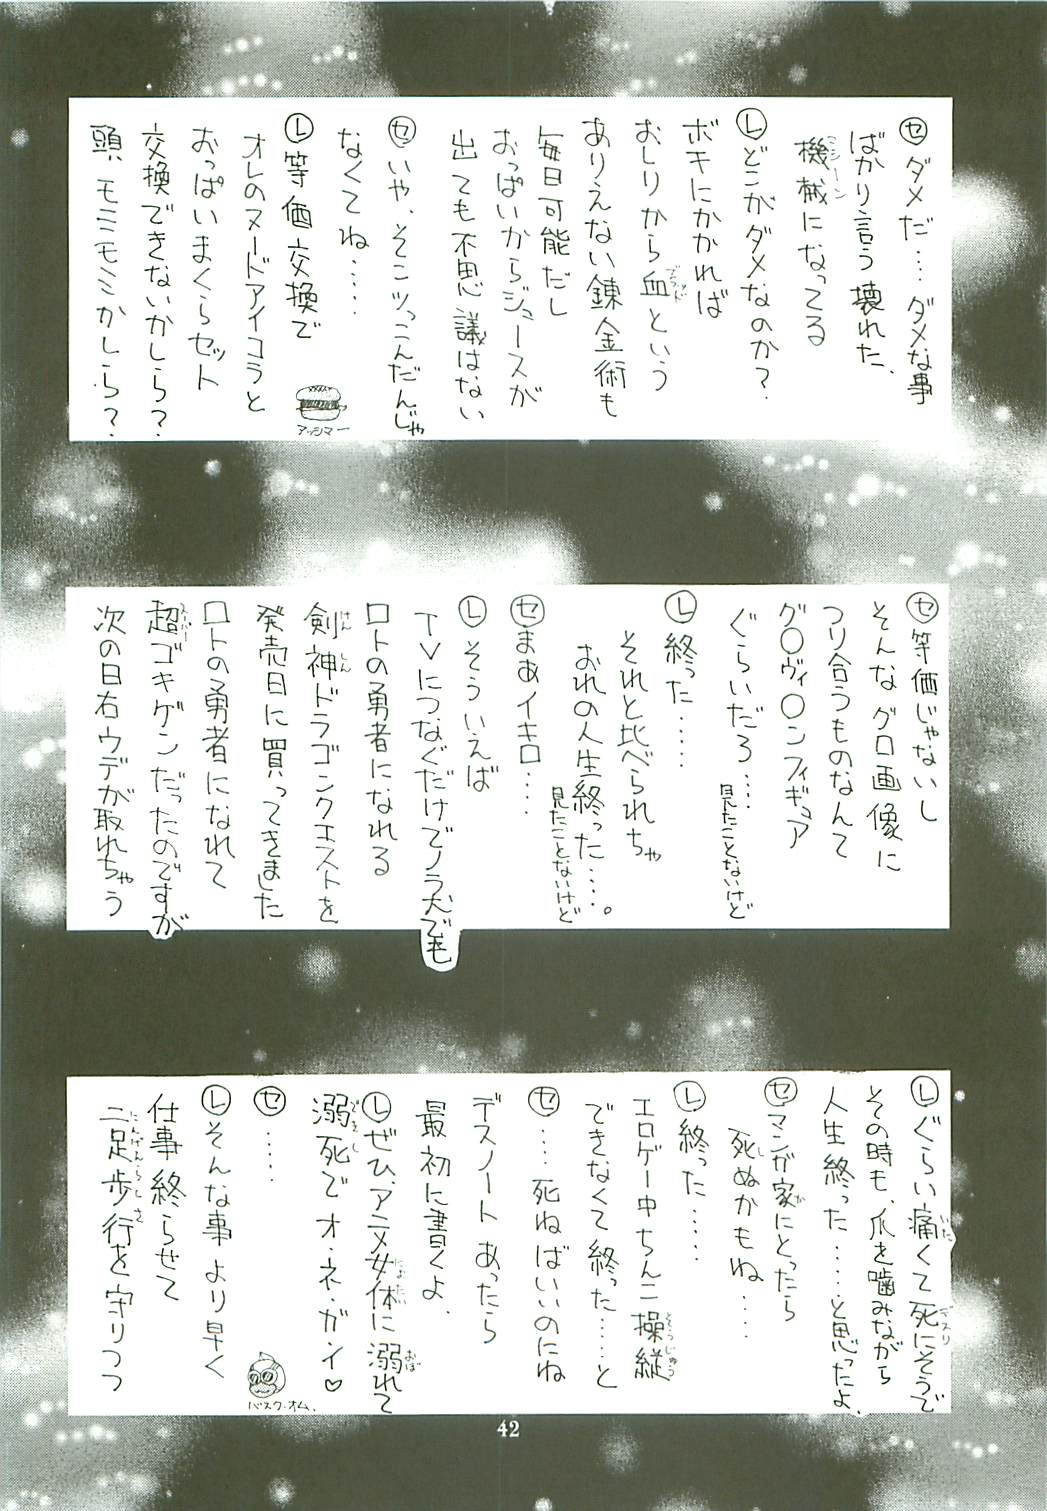 セ ダメだ‥‥ダメな事
ばかり言う壊れた、
機械になってる
マシーン
レ どこがダメなのか?
ボキにかかれば
おしりから血という
ありえない錬金術も
毎日可能だし
おっぱいからジュースが
出ても不思議はない
セ いや、そこツっこんだんじゃ
なくてね‥‥
レ 等価交換で
オレのヌードアイコラと
おっぱいまくらセット
交換できないかしら?
頭、モミモミかしら?
アッシマー
セ 等価じゃないし
そんなグロ画像に
つり合うものなんて
グ〇ヴィ〇ンフィギュア
ぐらいだろ‥‥見たことないけど
レ 終った‥‥‥
それと比べられちゃ
おれの人生終った‥‥。
見たことないけど
セ まあイキロ‥‥
レ そういえば
TVにつなぐだけでノラ犬でも
ロトの勇者になれる
剣神ドラゴンクエストを
けんしん
発売日に買ってきました
ロトの勇者になれて
超ゴキゲンだったのですが
スーパー
次の日右ウデが取れちゃう
レ ぐらい痛くて死にそうで
いた
デスリ
その時も、爪を噛みながら
人生終った‥‥‥と思ったよ、
セ マンガ家にとったら
か
死ぬかもね‥‥‥
し
レ 終った‥‥‥
エロゲー中ちんこ操縦
そうじゅう
できなくて終った‥‥‥と
セ ‥‥死ねばいいのにね
デスノートあったら
最初に書くよ、
レ ぜひ、アニメ女体に溺れて
にょたい
おぼ
溺死でオ・ネ・ガ・イ♡
できし
セ ‥‥‥
レ そんな事より早く
仕事終らせて
二足歩行を守りつつ
にんげんらしさ
バスク・オム、
42